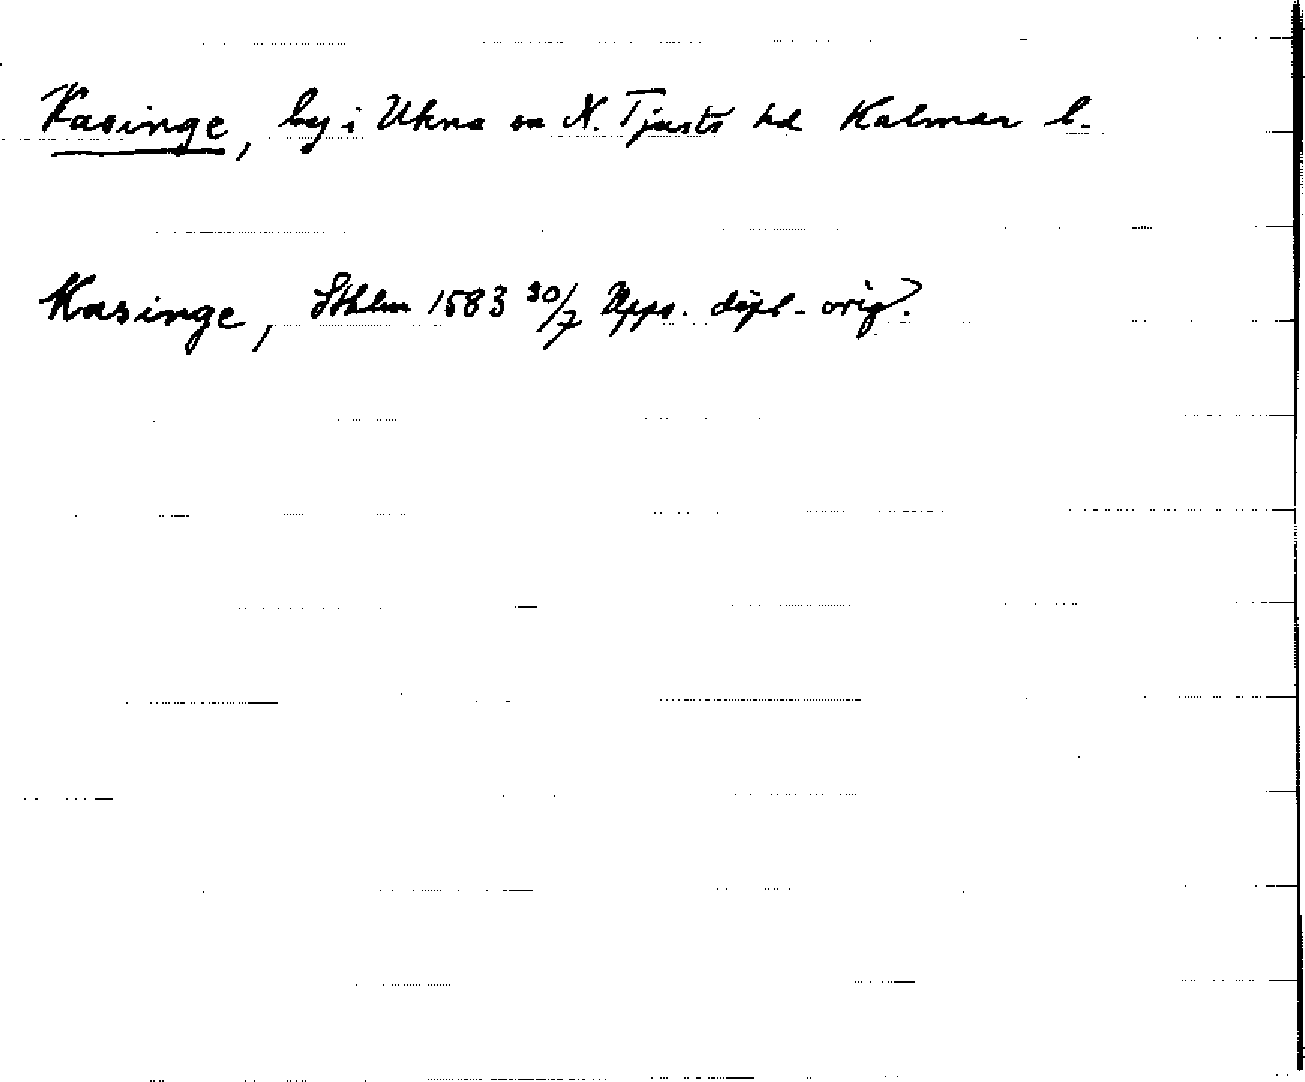 Kasinge, by i Ukna sn N. Tjusts hd Kalmar l.
Kasinge, Sthlm 1583 30/7 Upps. dipl. orig?